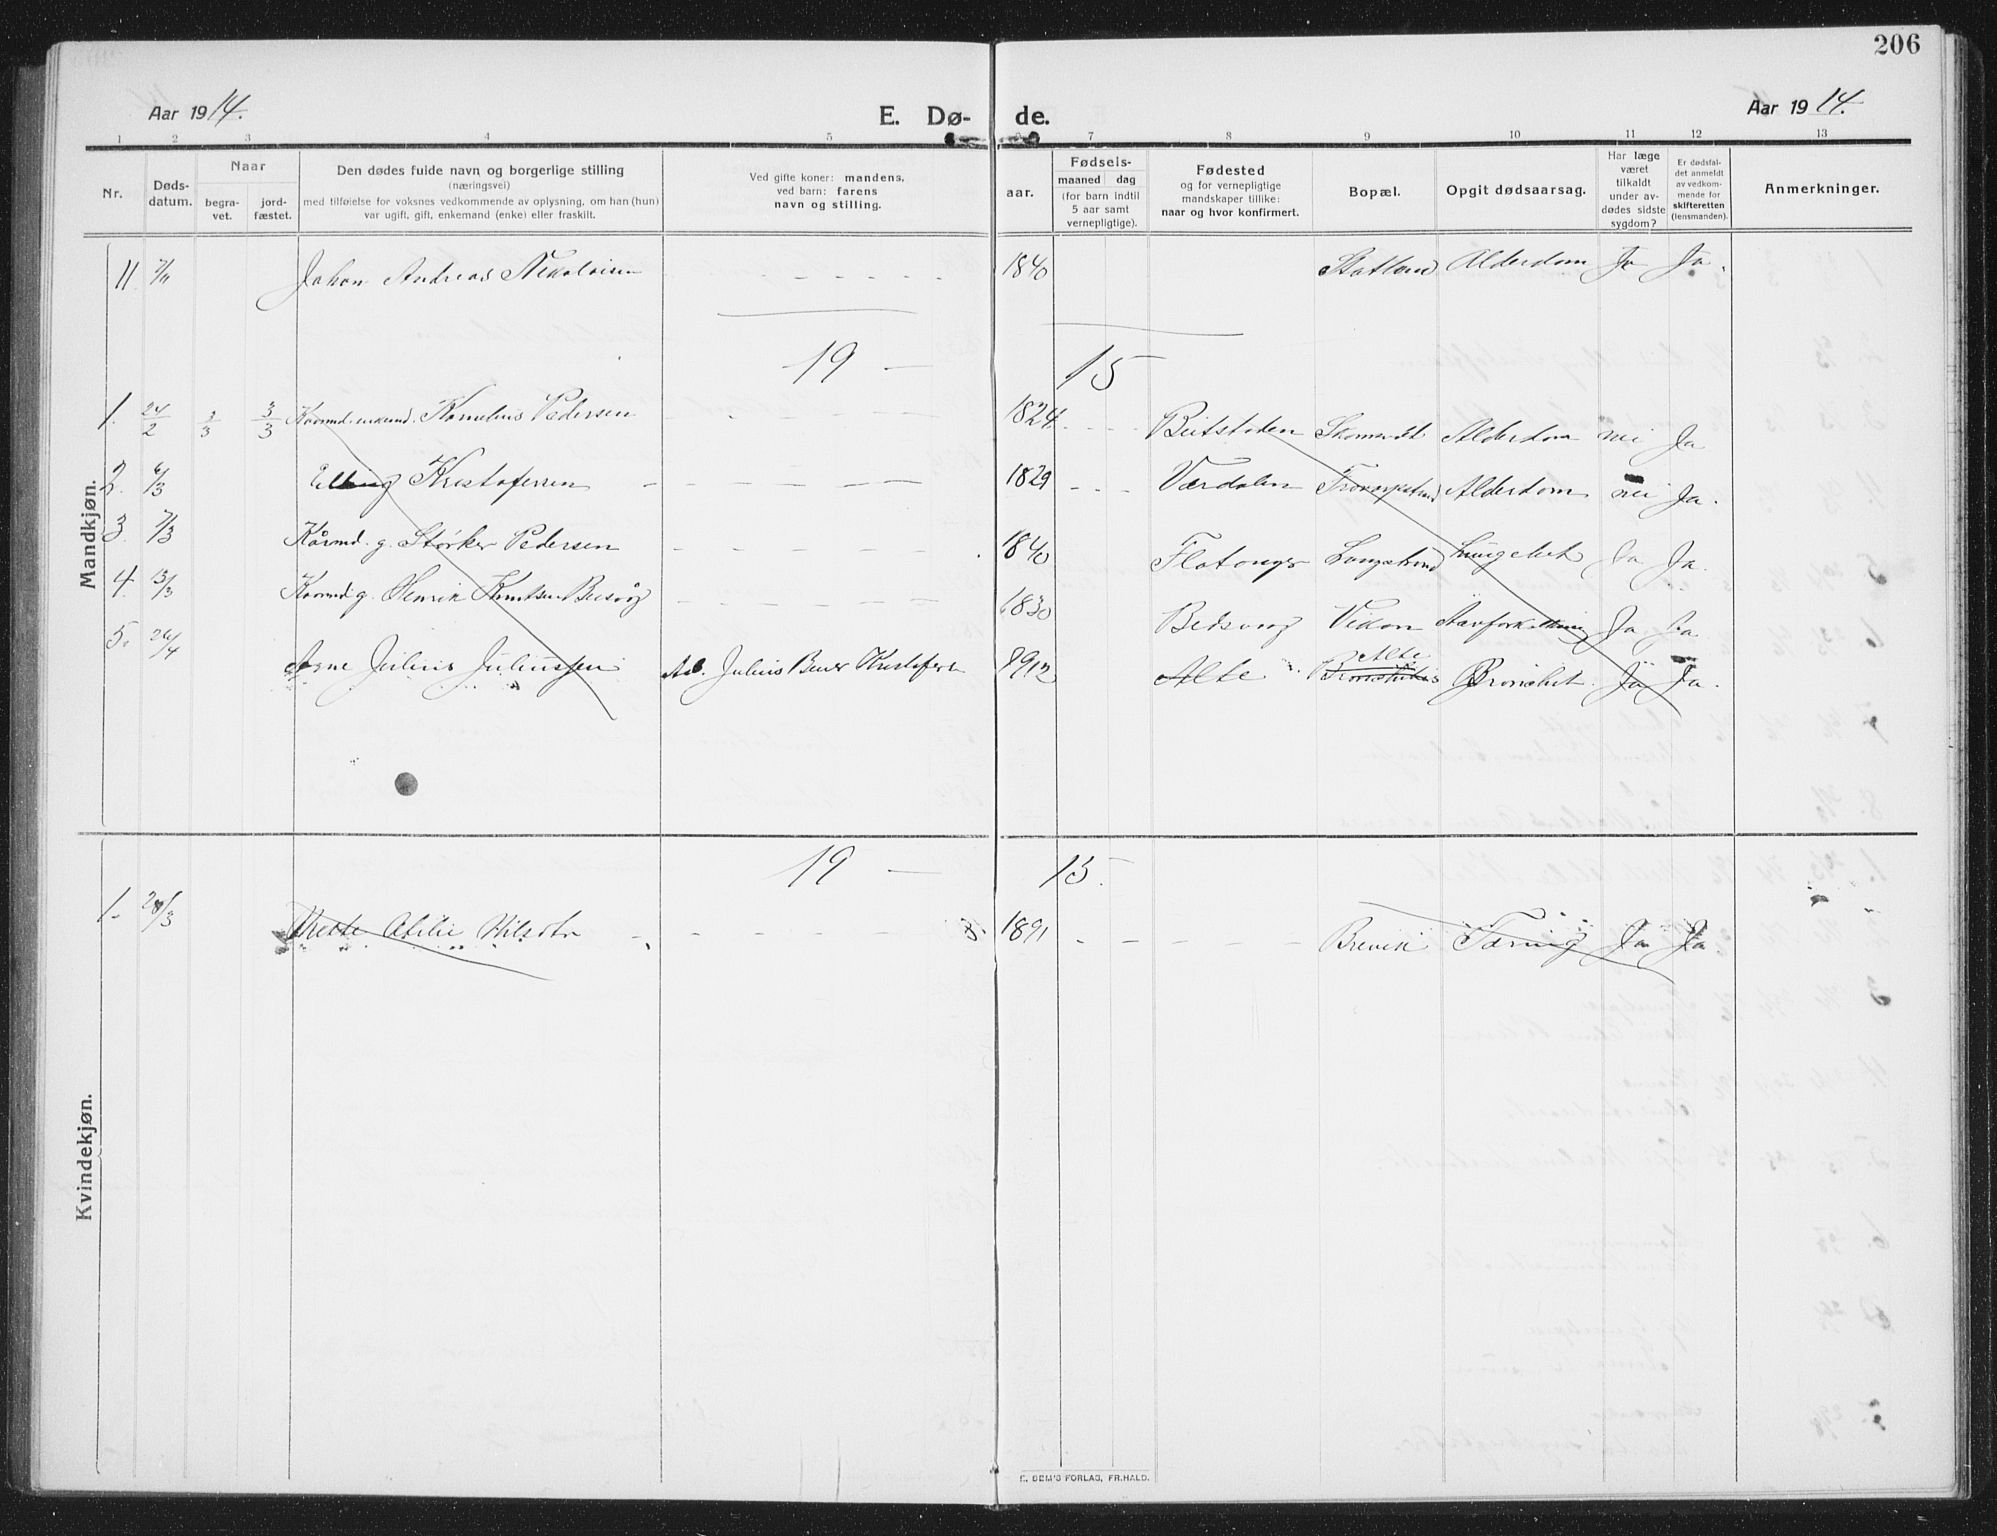 206
Aar 1914. E. Dø- de. Aar 1914.
1 2 3 4 5 6 7 8 9 10 11 12 13
Nr.
Døds-
datum.
Naar
begra-
vet.
jord-
fæstet.
Den dødes fulde navn og borgerlige stilling
(næringsvei)
med tilføielse for voksnes vedkommende av oplysning, om han (hun)
var ugift, gift, enkemand (enke) eller fraskilt.
Ved gifte koner: mandens,
ved barn: farens
navn og stilling.
aar.
Fødsels-
maaned dag
(for barn indtil
5 aar samt
vernepligtige).
Fødested
og for vernepligtige
mandskaper tillike:
naar og hvor konfirmert.
Bopæl.
Opgit dødsaarsag.
Har læge
været
tilkaldt
under av-
dødes sidste
sygdom?
Er dødsfal-
det anmeldt
av vedkom-
mende for
skifteretten
(lensmanden).
Anmerkninger.
Mandkjøn.
11 7/11 Johan Andreas Nikolaisen 1840 Alderdom Ja Ja.
19 — 15
1. 24/2 3/3 3/3 Kornelius Pedersen 1824 Beitstaden Alderdom nei Ja
2. 6/3 Kristofersen 1829 Værdalen Alderdom nei Ja.
3. 7/3 Kårmd. g. Størker Pedersen 1840 Langstrand Ja Ja.
4. 13/3 Kaarmd g. Henrik Knutsen 1830 Vikan Ja Ja.
5. 26/4 Arne Julius Juliussen Julius 1912 Alte Alte Bronchit. Ja Ja.
19 — 15.
Kvindekjøn.
1. 28/3 1891 Brevik Tæring Ja Ja
E. SEM'S FORLAG, FR.HALD.